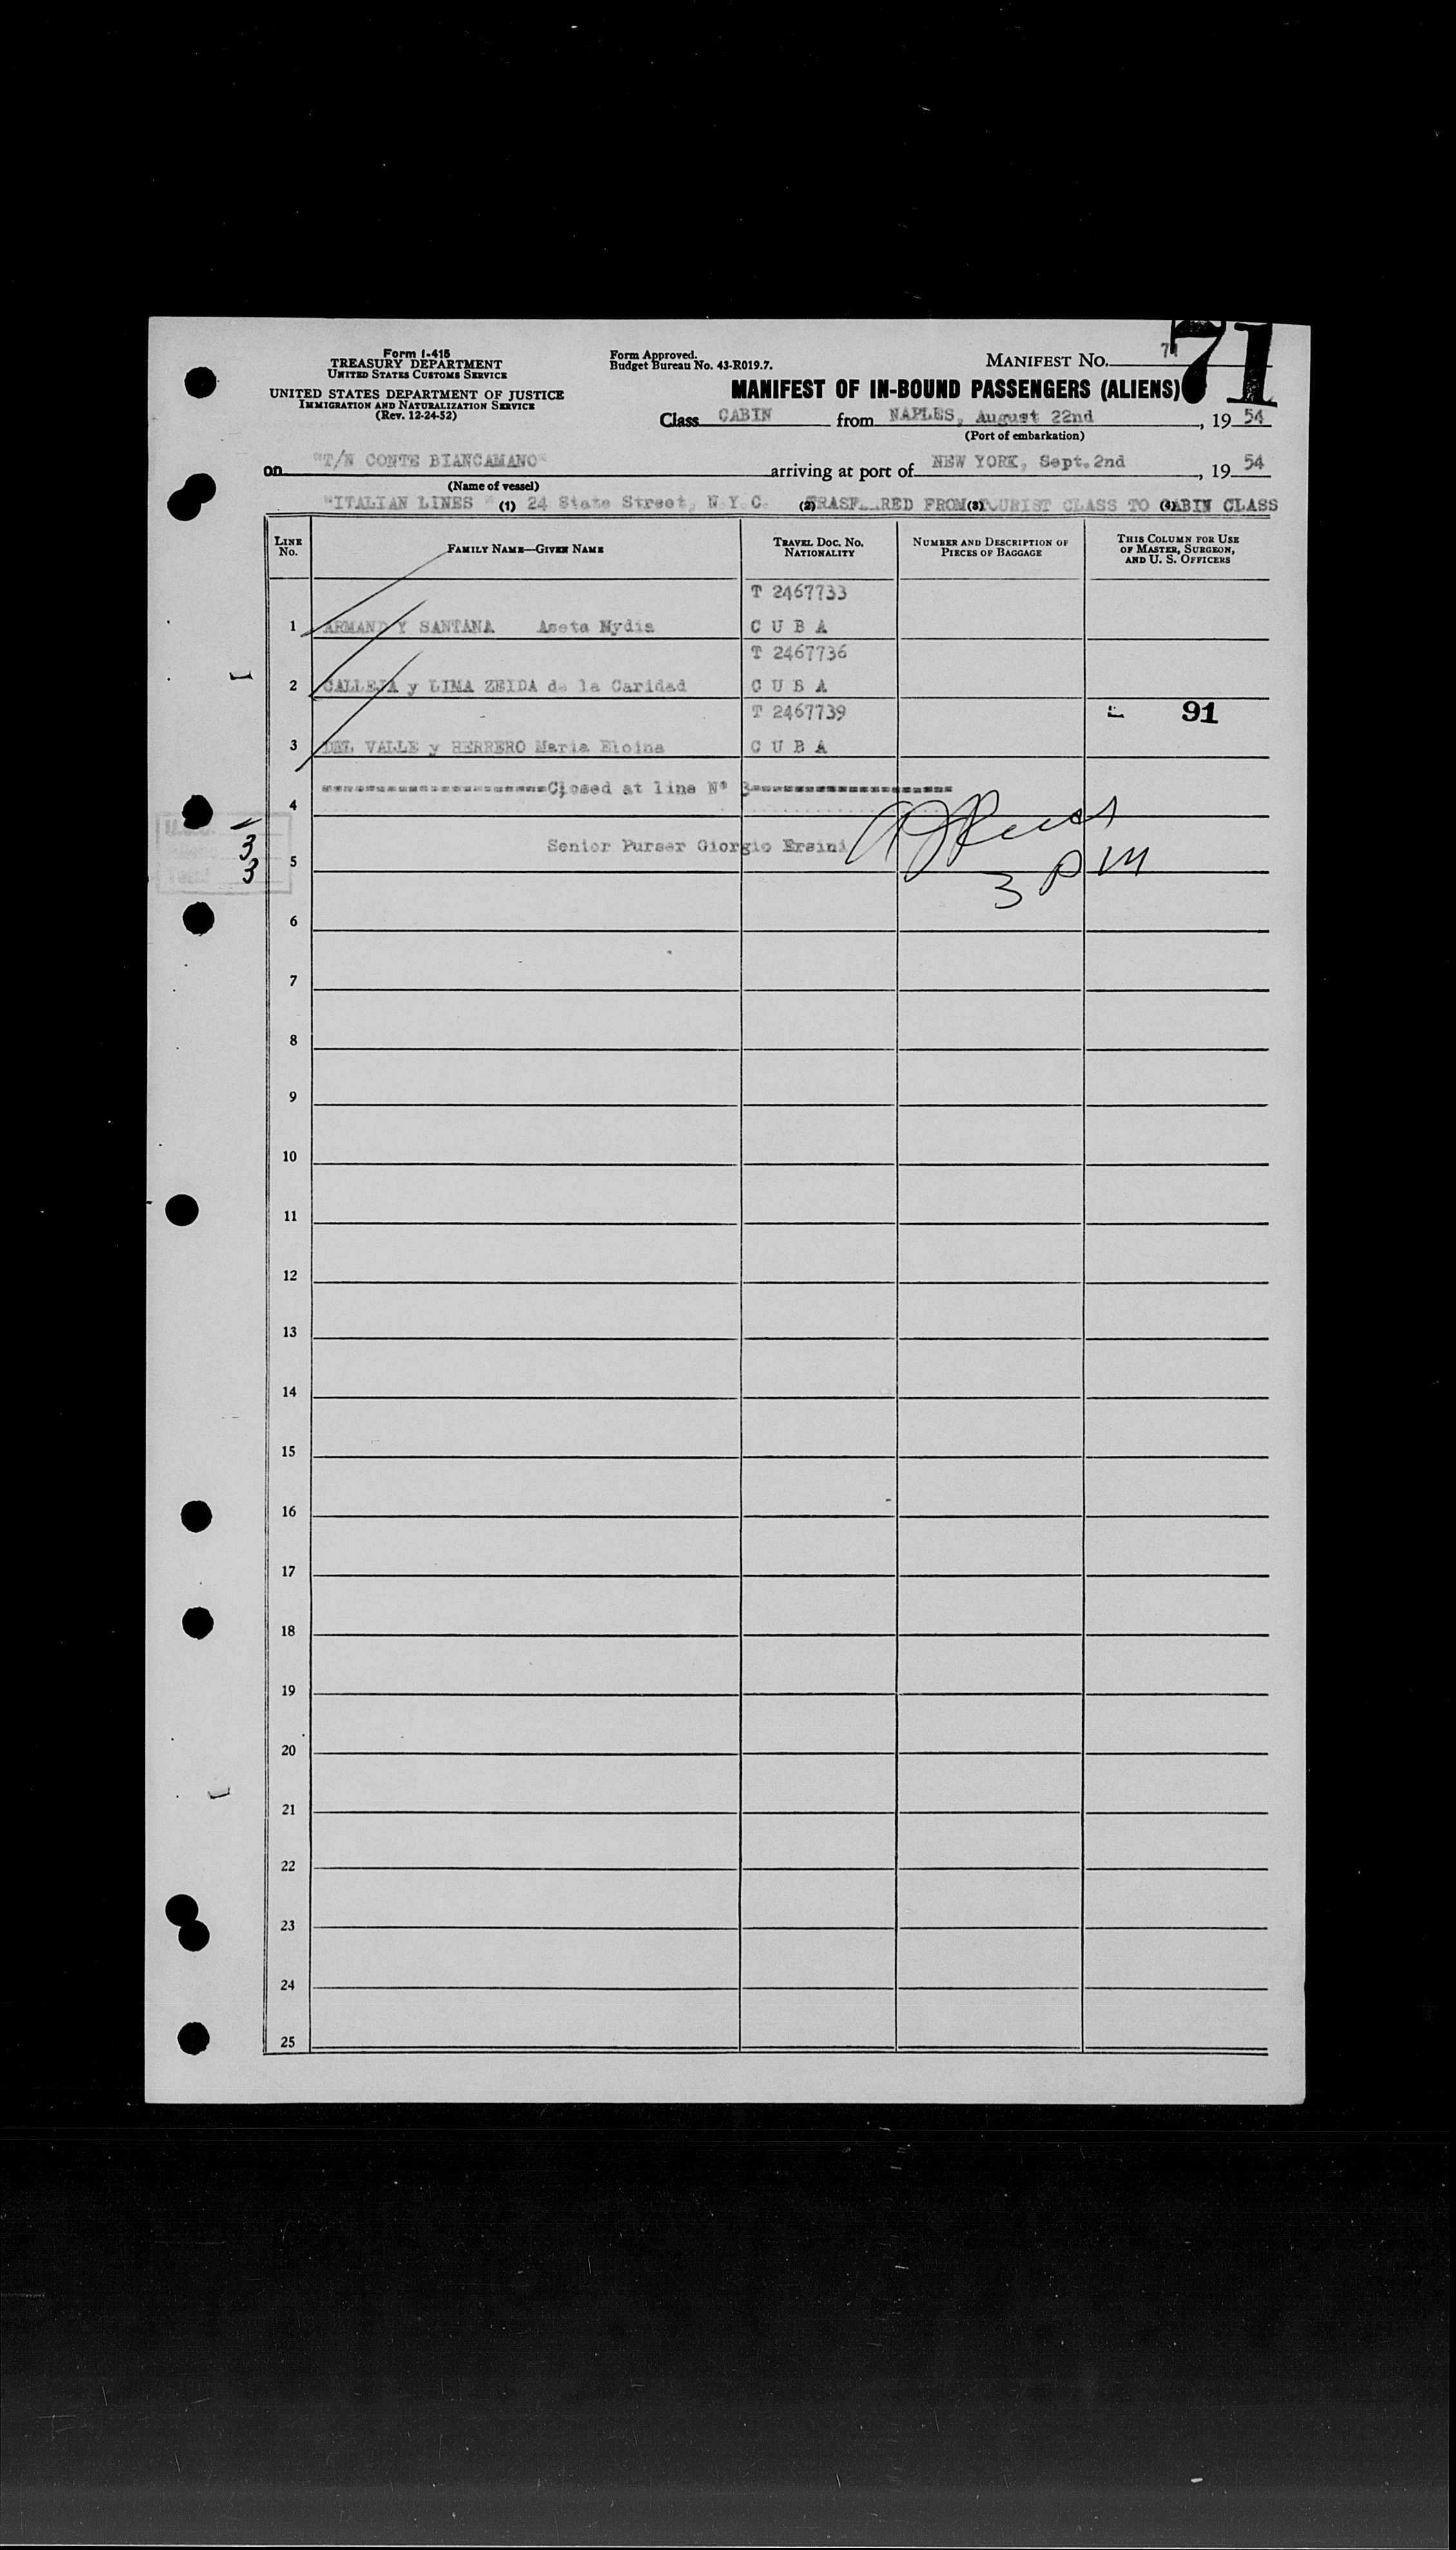 Form I-415
TREASURY DEPARTMENT
UNITED STATES CUSTOMS SERVICE
UNITED STATES DEPARTMENT OF JUSTICE
IMMIGRATION AND NATURALIZATION SERVICE
(Rev. 12-24-52)
Form Approved.
Budget Bureau No. 43-R019.7.
MANIFEST No. 71
71
MANIFEST OF IN-BOUND PASSENGERS (ALIENS)
Class CABIN from NAPLES, August 22nd, 19 54
(Port of embarkation)
on "T/N CONTE BIANCAMANO" arriving at port of NEW YORK, Sept.2nd, 19 54
(Name of vessel)
"ITALIAN LINES " (1) 24 State Street, N.Y.C. (2) RED FROM (3) TOURIST CLASS TO (4) CABIN CLASS
LINE No. FAMILY NAME—GIVEN NAME TRAVEL DOC. NO. NATIONALITY NUMBER AND DESCRIPTION OF PIECES OF BAGGAGE THIS COLUMN FOR USE OF MASTER, SURGEON, AND U. S. OFFICERS
T 2467733
1 ARMAND Y SANTANA Aseta Nydia C U B A
T 2467736
2 CALLEJA y LIMA ZEIDA de la Caridad C U B A
T 2467739 91
3 DEL VALLE y HERRERO Maria Eloina C U B A
Closed at line N° 3
4
3
Senior Purser Giorgio Ersini
3
5
3 PM
6
7
8
9
10
11
12
13
14
15
16
17
18
19
20
21
22
23
24
25